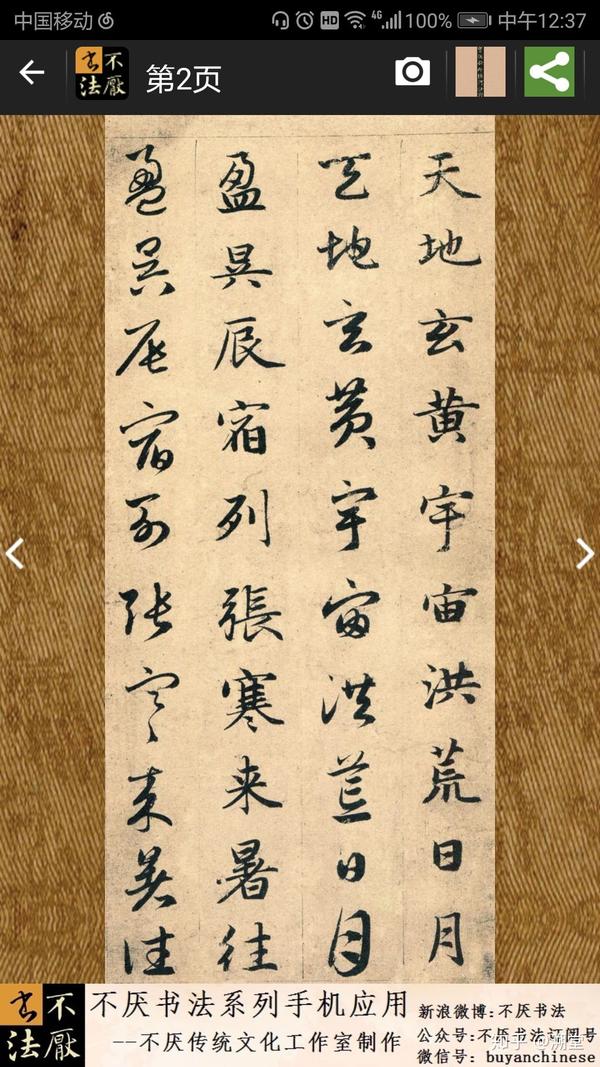 中国移动 HD 4G 100% 中午12:37
不厭书法
第2页
天地玄黄宇宙洪荒日月
天地玄黄宇宙洪荒日月
盈昃辰宿列張寒来暑往
盈昃辰宿列张寒来暑往
不厭书法
不厌书法系列手机应用
--不厌传统文化工作室制作
新浪微博:不厌书法
公众号:不厌书法订阅号
微信号: buyanchinese
知乎